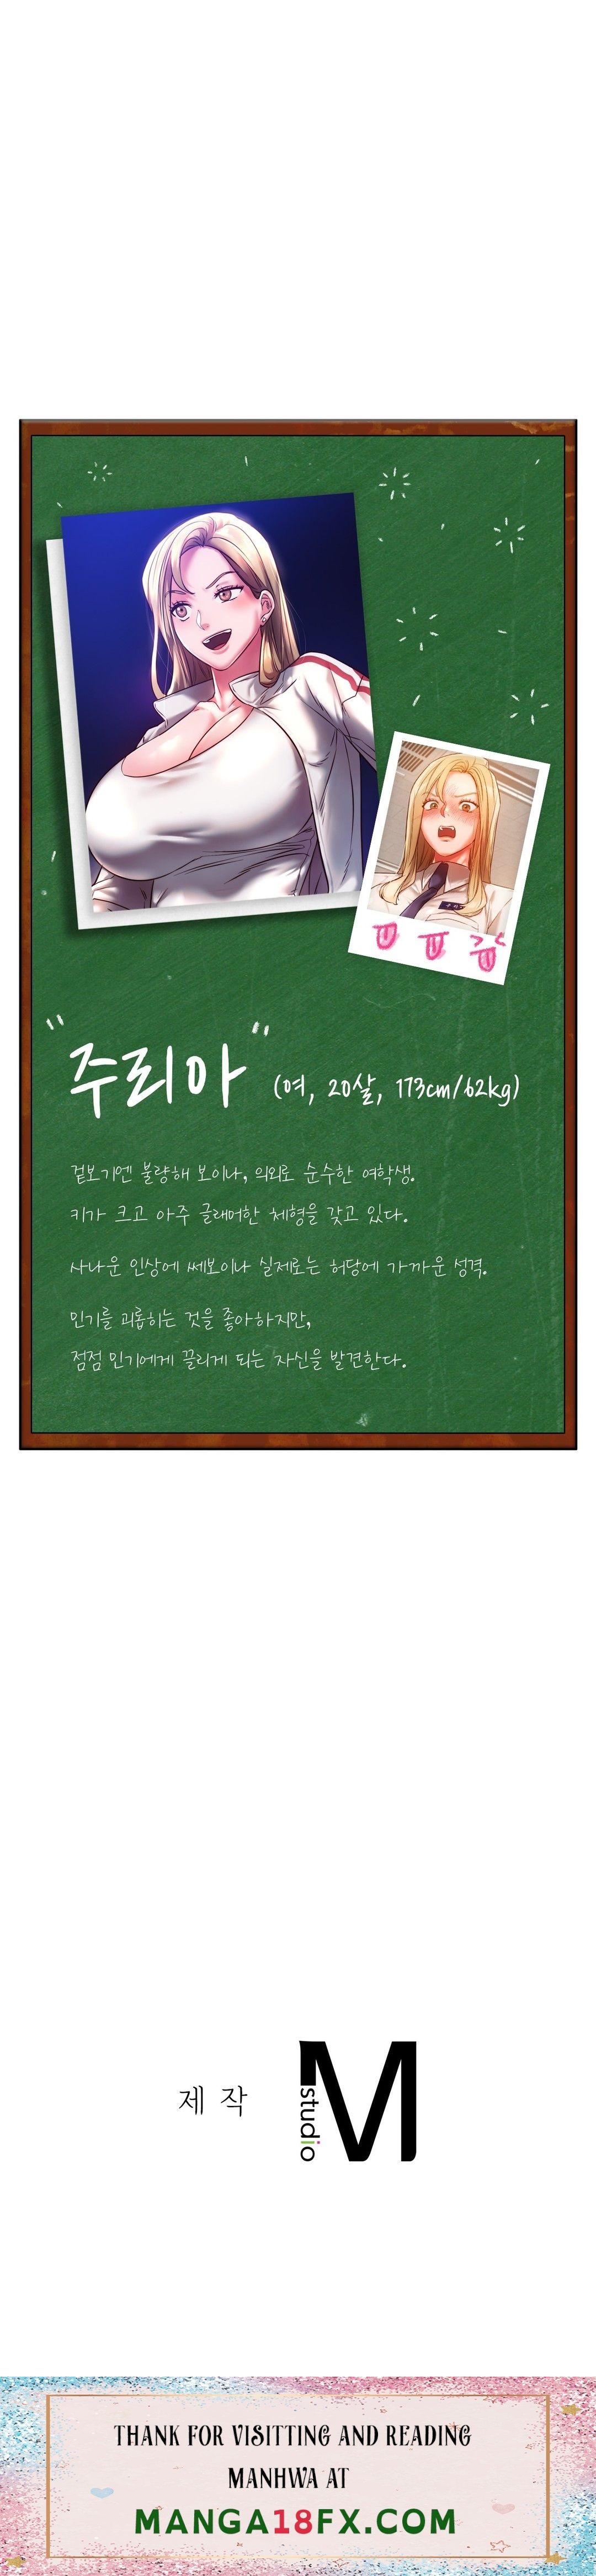 "주리아" (여, 20살, 173cm/62kg)
겉보기엔 불량해 보이나, 의외로 순수한 여학생.
키가 크고 아주 글래머한 체형을 갖고 있다.
사나운 인상에 쎄보이나 실제로는 허당에 가까운 성격.
민기를 괴롭히는 것을 좋아하지만,
점점 민기에게 끌리게 되는 자신을 발견한다.
제작
M studio
THANK FOR VISITTING AND READING
MANHWA AT
MANGA18FX.COM